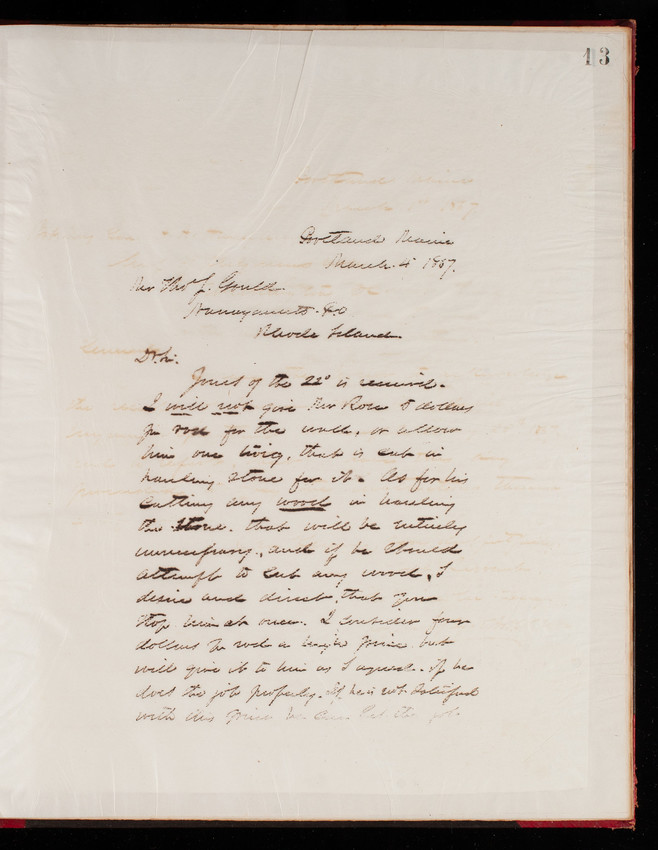 13
Portland Maine
March 4 1887.
Mr Thos J. Gould.
P.O
Rhode Island.
Dr Sir.
Yours of the 22d is received.
I will not give Mr Rose 5 dollars
pr rod for the wall, or allow
him one twig, that is cut in
hauling stone for it. As for his
Cutting any wood in hauling
the stone. that will be entirely
unnecessary, and if he should
attempt to cut any wood, I
desire and direct, that you
stop him at once. I consider four
dollars pr rod a high price but
will give it to him as I agreed. if he
does the job properly. If he is not satisfied
with this price he can let the job